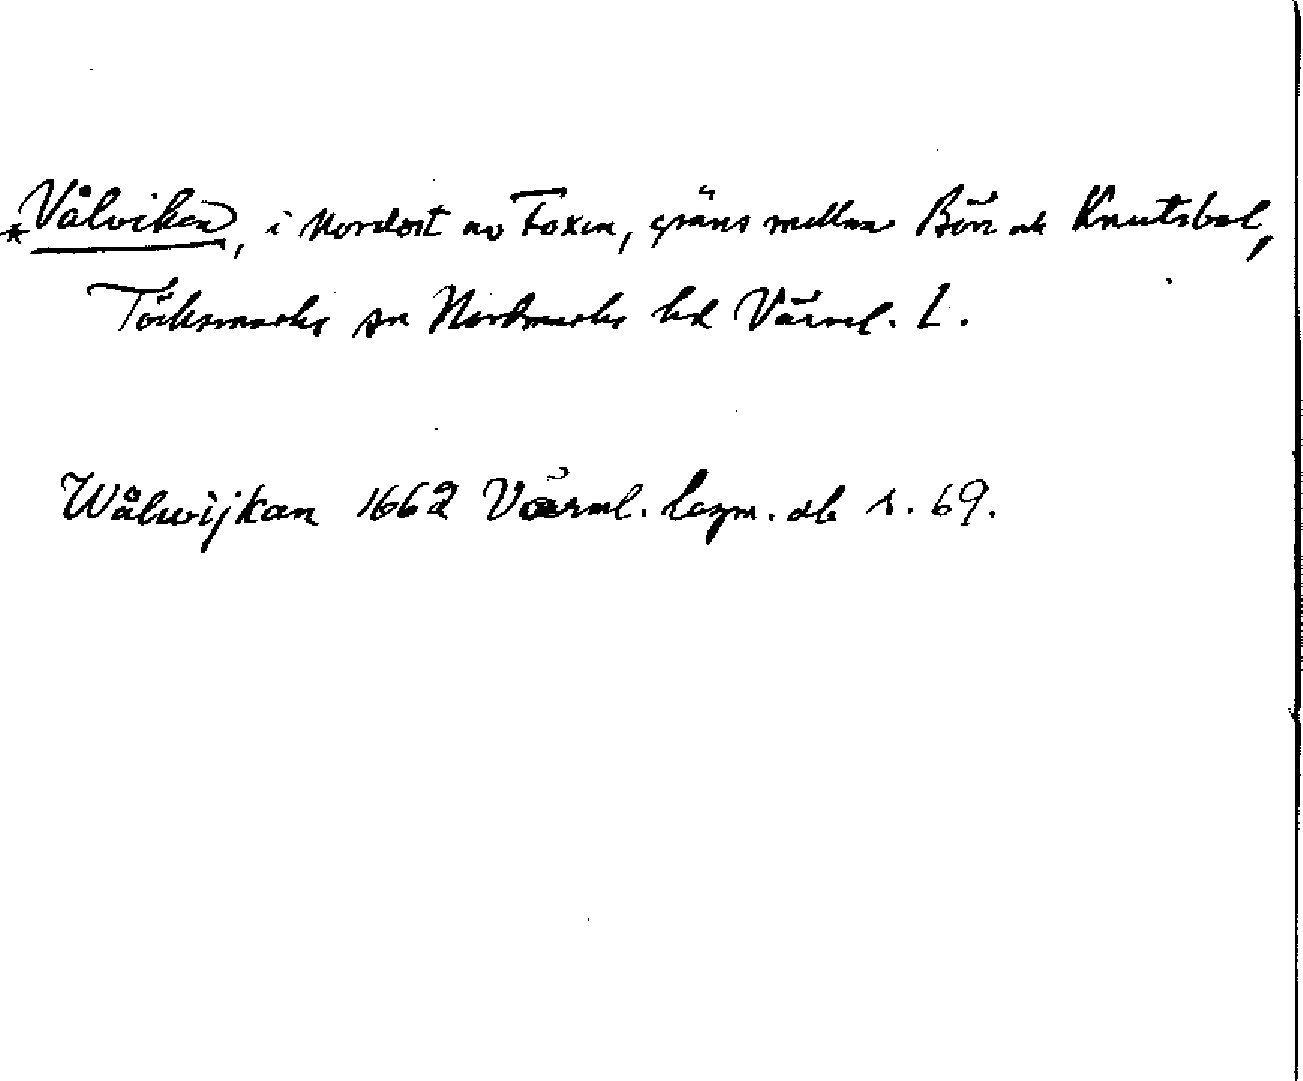 *Vålviken, i Nordost av Foxen, gräns mellan Bön och Knutsbol,
Töcksmarks sn Nordmarks hd Värml. L.
Wålwijkan 1662 Värml. lagm. db s. 69.